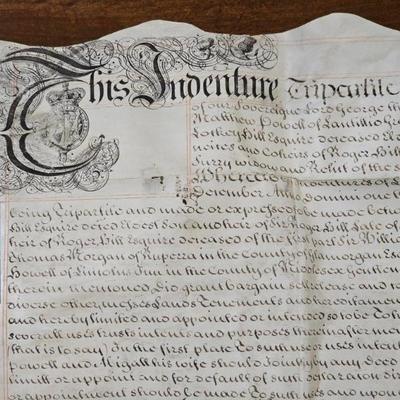 This Indenture Tripartite
of our Sovereigne Lord George the
Matthew Powell of Lantillio Gr
Bill Esquire deceased El
and Coheirs of Roger Bill
Surry widow and Relict of the s
Whereas Indentures of L
December Anno domini one t
being Tripartite and made or expressed to be made betw
Bill Esquire deced Eldest Son and heir of Sir Roger Bill Late of
heir of Roger Bill Esquire deceased of the first part Sir Willi
Thomas Morgan of Ruperra in the County of Glamorgan Es
Howell of Lincolns Inn in the County of Middesex Gentlem
herein mentioned Did grant bargain sell release and
diverse other Messes Lands Tenements and hereditamen
and hereby limited and appointed or intended so to be To h
severall uses trusts intents and purposes therein after men
that is to say) In the first place To such use or uses inten
Powell and Abigall his wife should Joyntly by any Deed
limitt or appoint and for default of such declaration dir
or appointment should be made To such uses and upon